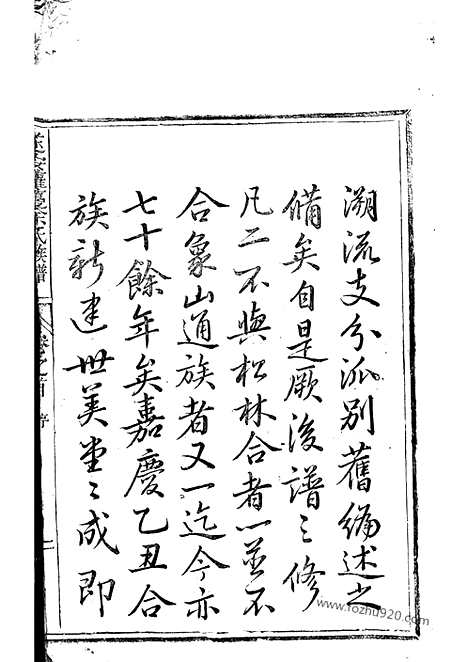 溯流支分派別舊編述之
備矣自是厥後譜〻修
凡二不與松林合者一並不
合象山通族者又一迄今亦
七十餘年矣嘉慶乙丑合
族新建世美堂〻成即
氏族譜
卷之首 序
www.fozhu920.com